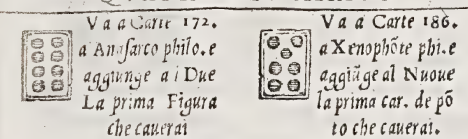 Va a Carte 172.
a Anasarco philo. e
aggiunge a i Due
La prima Figura
che cauerai
Va a Carte 186.
a Xenophõte phi. e
aggiũge al Nuoue
la prima car. de põ
to che cauerai.